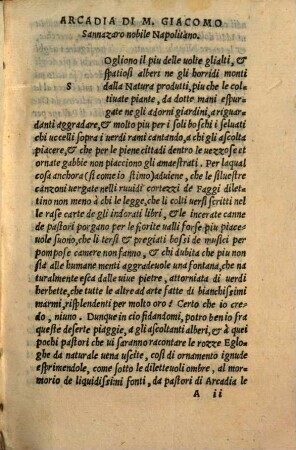 ARCADIA DI M. GIACOMO
Sannazaro nobile Napolitano.
Ogliono il piu delle uolte glialti, &
spatiosi alberi ne gli horridi monti
S dalla Natura produtti, piu che le col
tiuate piante, da dotte mani espur
gate ne gli adorni giardini, a riguar
danti aggradare, & molto piu per i soli boschi i seluati
chi uccelli sopra i uerdi rami cantando, a chi gli ascolta
piacere, & che per le piene cittadi dentro le uezzose et
ornate gabbie non piacciono gli amaestrati. Per laqual
cosa anchora (si come io stimo) aduiene, che le siluestre
canzoni uergate nelli ruuidi cortezzi de Faggi dilet
tino non meno à chi le legge, che li colti uersi scritti nel
le rase carte de gli indorati libri, & le incerate canne
de pastori porgano per le fiorite ualli forse piu piace
uole suono, che li tersi & pregiati bossi de musici per
pompose camere non fanno, & chi dubita che piu non
sia alle humane menti aggradeuole una fontana, che na
turalmente esca dalle uiue pietre, attorniata di uerdi
herbette, che tutte le altre ad arte fatte di bianchissimi
marmi, risplendenti per molto oro? Certo che io cre
do, niuno. Dunque in cio fidandomi, potro ben io fra
queste deserte piaggie, a gli ascoltanti alberi, & à quei
pochi pastori che ui saranno racontare le rozze Eglo
ghe da naturale uena uscite, cosi di ornamento ignude
esprimendole, come sotto le diletteuoli ombre, al mor
morio de liquidissimi fonti, da pastori di Arcadia le
A ii